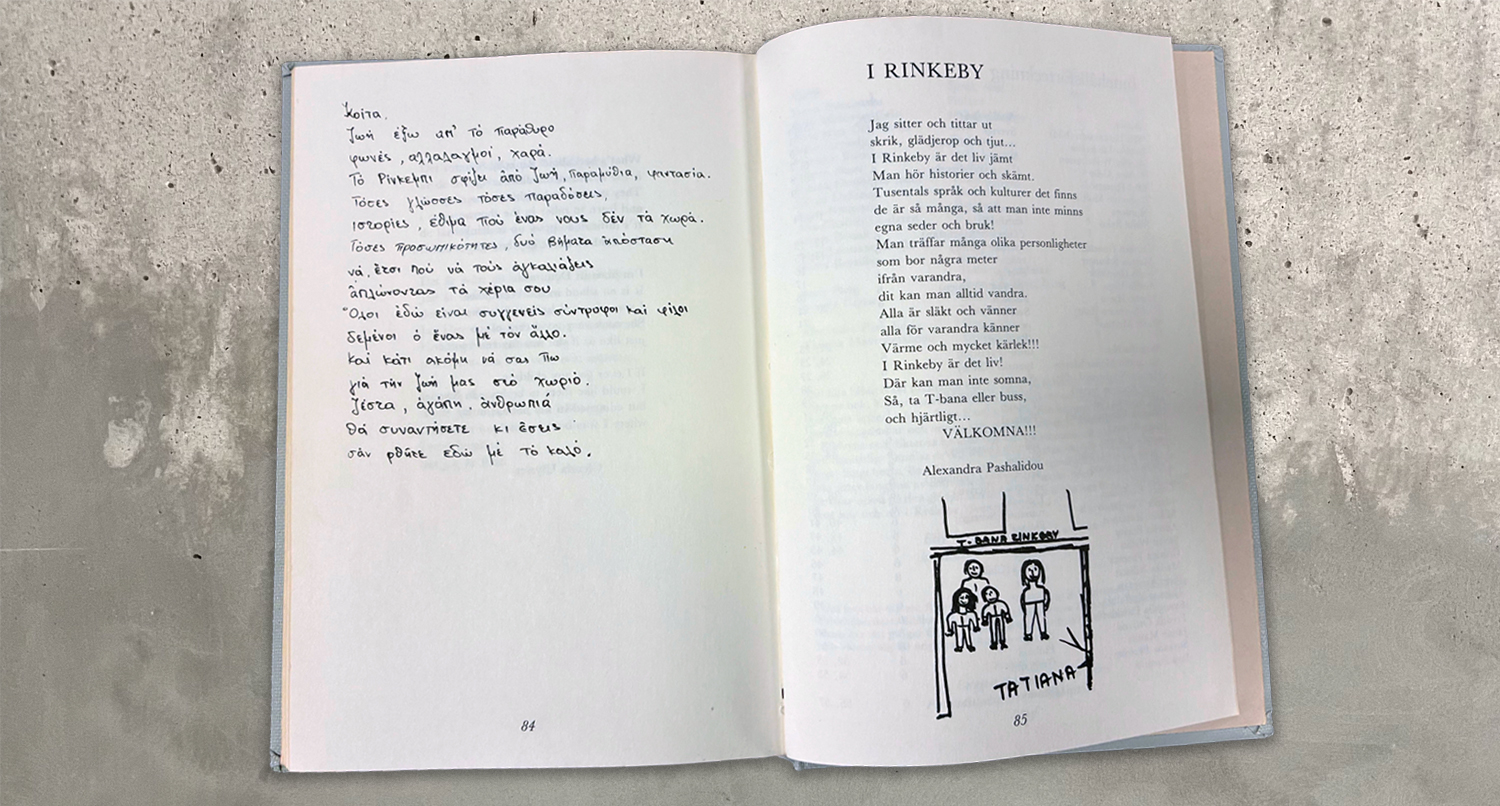 Κοίτα.
Ζωή έξω απ' τό παράθυρο
φωνές, αλλαλαγμοί, χαρά.
Τό Ρίνκεμπι σφίζει ἀπό ζωή, παραμύθια, φαντασία.
Τόσες γλώσσες τόσες παραδόσεις,
ιστορίες, έθιμα πού ένας νους δέν τά χωρά.
Τόσες προσωπικότητες, δυό βήματα ἀπόσταση
νά, έτσι πού νά τούς ἀγκαλιάζεις
ἁπλώνοντας τά χέρια σου
Ὅλοι ἐδώ είναι συγγενείς σύντροφοι καί φίλοι
δεμένοι ὁ ἕνας μέ τόν ἄλλο.
Καί κάτι ακόμη νά σας πω
γιά τήν ζωή μας στό χωριό.
Ζέστα, ἀγάπη, ἀνθρωπιά
θά συναντήσετε κι ἐσεις
σάν ρθῆτε εδώ μέ τό καλό.
84
I RINKEBY
Jag sitter och tittar ut
skrik, glädjerop och tjut...
I Rinkeby är det liv jämt
Man hör historier och skämt.
Tusentals språk och kulturer det finns
de är så många, så att man inte minns
egna seder och bruk!
Man träffar många olika personligheter
som bor några meter
ifrån varandra,
dit kan man alltid vandra.
Alla är släkt och vänner
alla för varandra känner
Värme och mycket kärlek!!!
I Rinkeby är det liv!
Där kan man inte somna,
Så, ta T-bana eller buss,
och hjärtligt...
VÄLKOMNA!!!
Alexandra Pashalidou
T-BANA RINKEBY
TATIANA
85